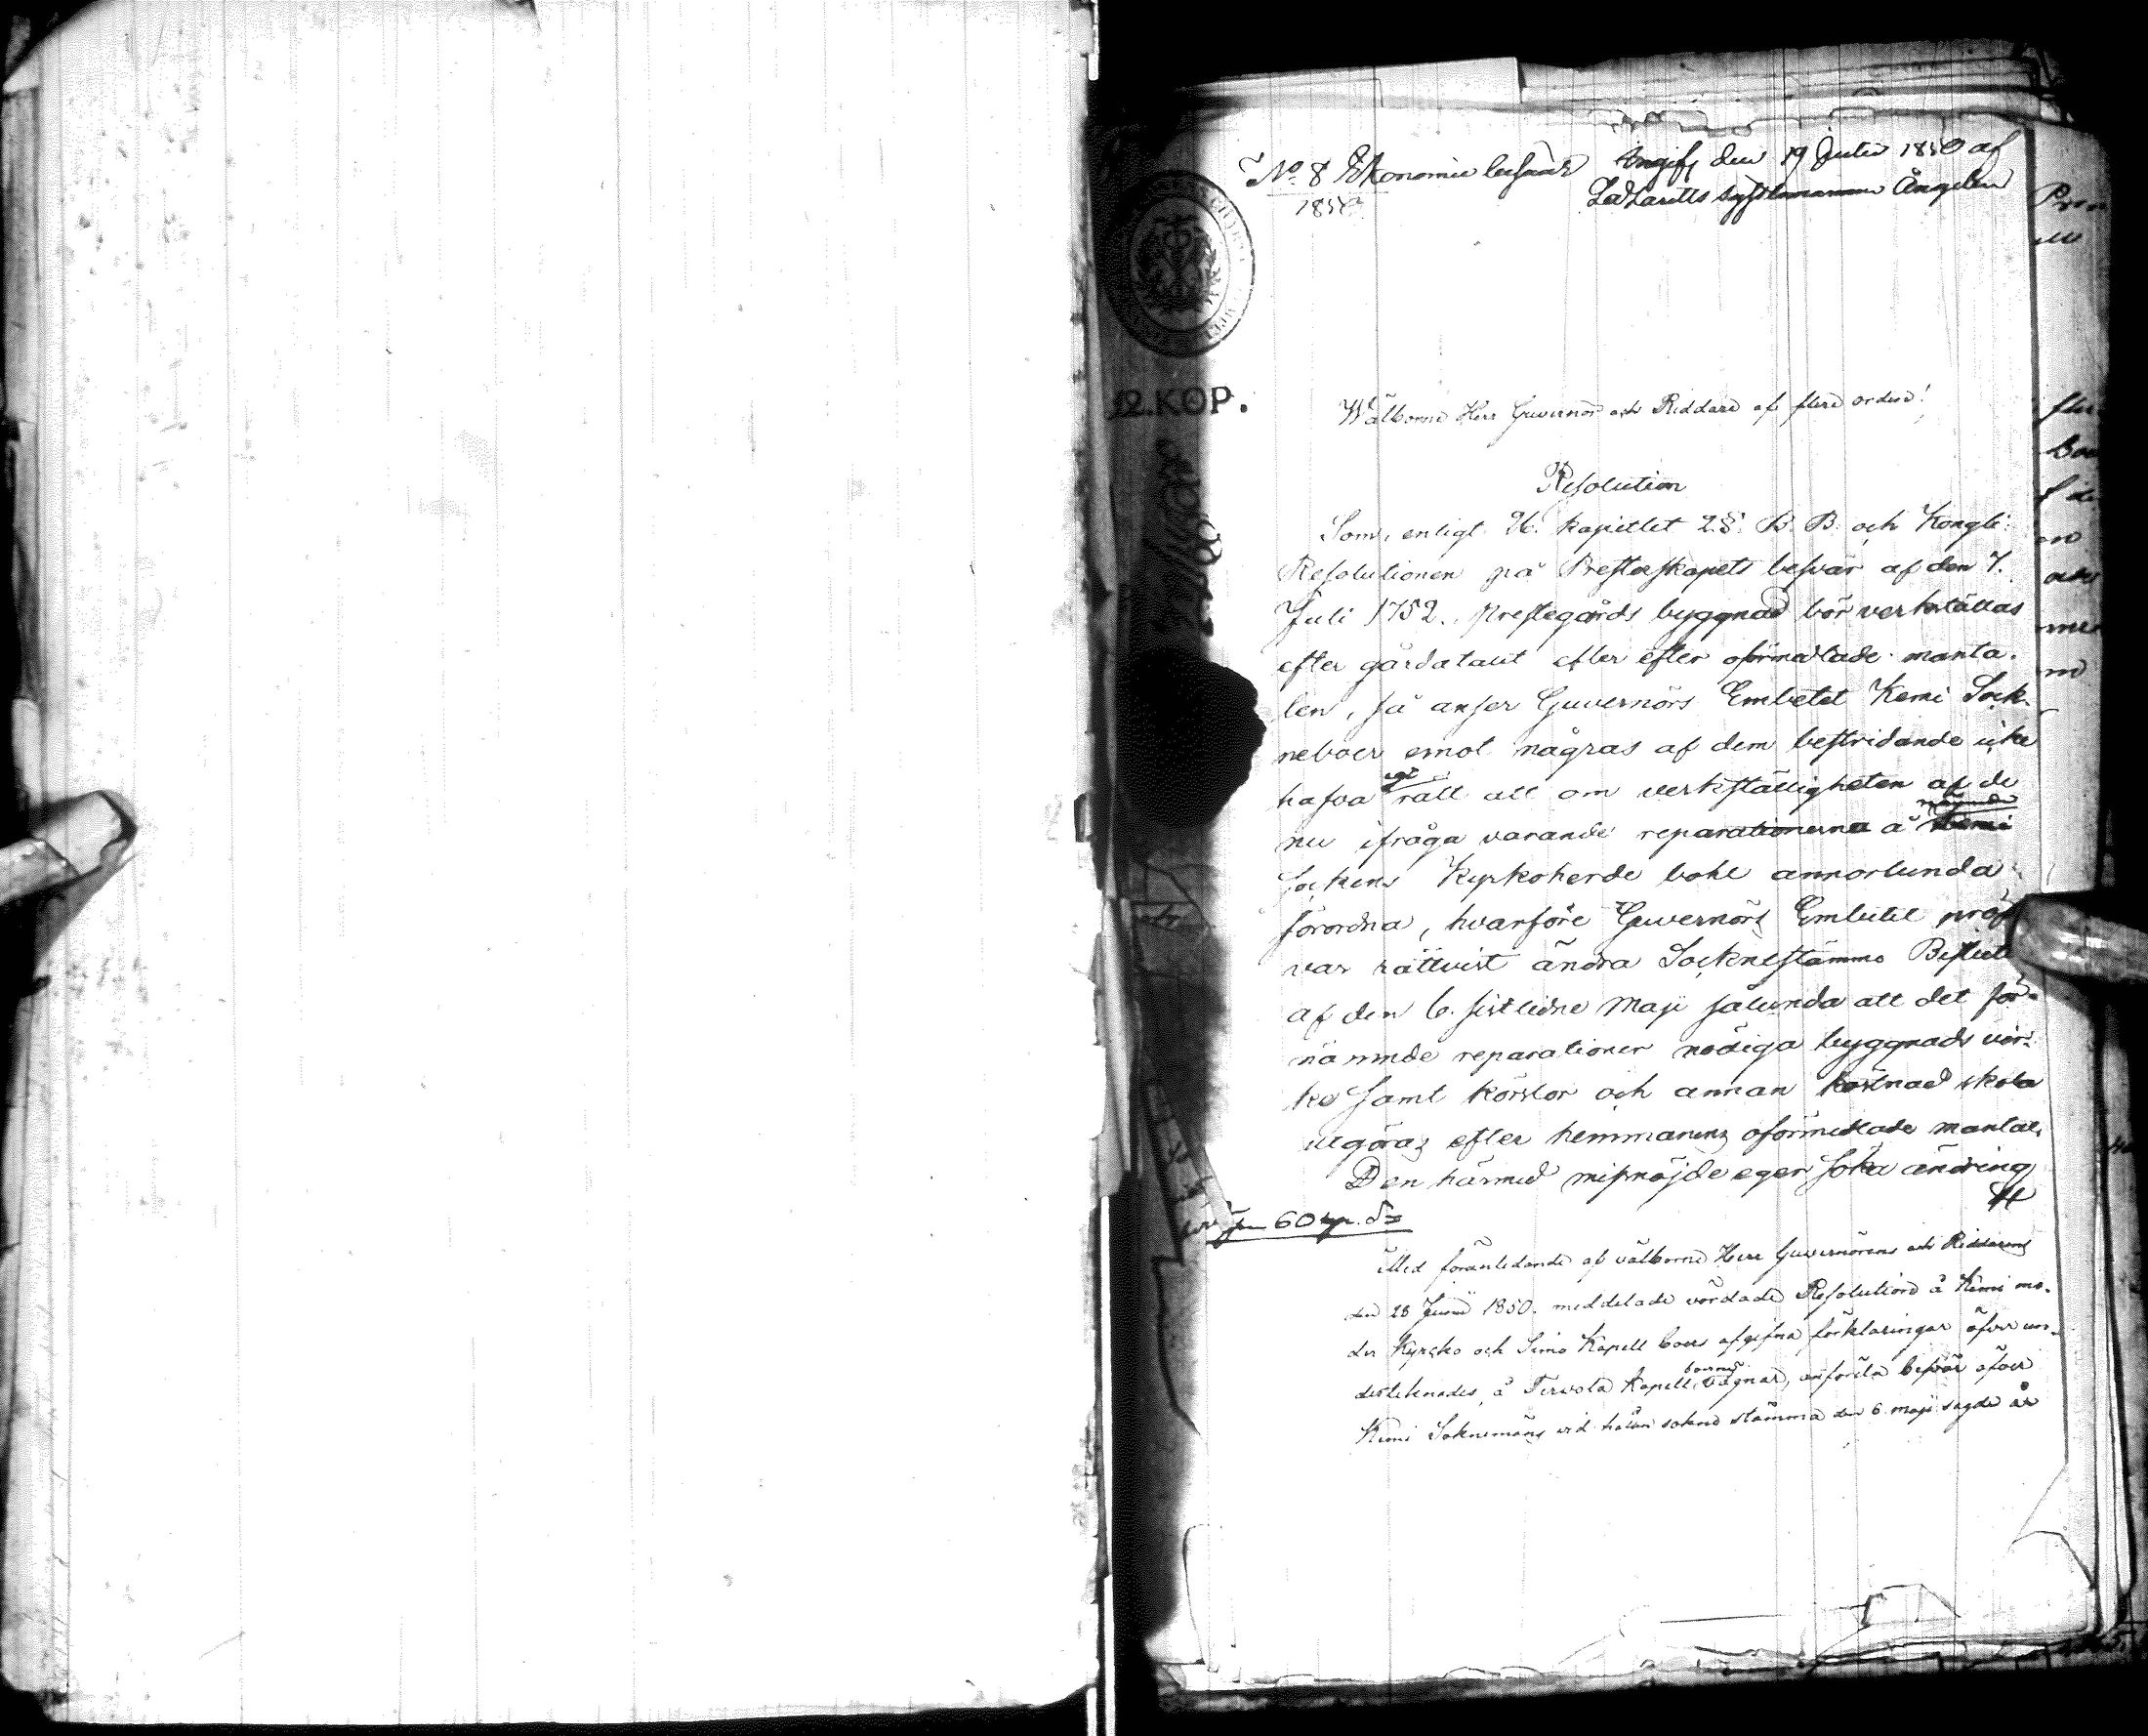 No 8 Ekonomie besvär
1850
Ingif. den 19 Julii 1850 af
Lazaretts sysslomannen Ångelin
12 KOP.
Wälborne Herr Guvernör och Riddare af flere orden!
Resolution
Som, enligt 26. kapitlet 2 §. B. B. och Kongli:
Resolutionen på Presterskapets besvär af den 7.
Juli 1752. prestegårds byggnad bör verkställas
efter gårdatalet eller efter oförmedlade manta-
len, så anser Guvernörs Embetet Kemi Sock-
neboer emot någras af dem bestridande icke
hafva egt rätt att om verkställigheten af de
nu ifråga varande reparationerna å Kemi
Sockens Kyrkoherde bohl annorlunda
förordna, hvarföre Guvernörs Embetet pröf
var rättvist ändra Socknestämmo Beslut
af den 6. sistledne Maji sålunda att det för-
nämnde reparationer nödiga byggnads vir-
ke samt körslor och annan kostnad skola
utgöras efter hemmanens oförmedlade mantal.
Den härmed missnöjde eger söka ändring
60 kop. Sr
Med föranledande af välborne Herr Guvernörens och Riddarens
den 28 Junii 1850. meddelade vördade Resolution å Kemi mo-
der Kyrcko och Simo Kapell boers afgifna förklaringar öfver un-
dertecknades, å Tervola Kapell boernes vägnar, anförda besvär öfver
Kemi Soknemäns vid hållen sokne stämma den 6 maji sagde år